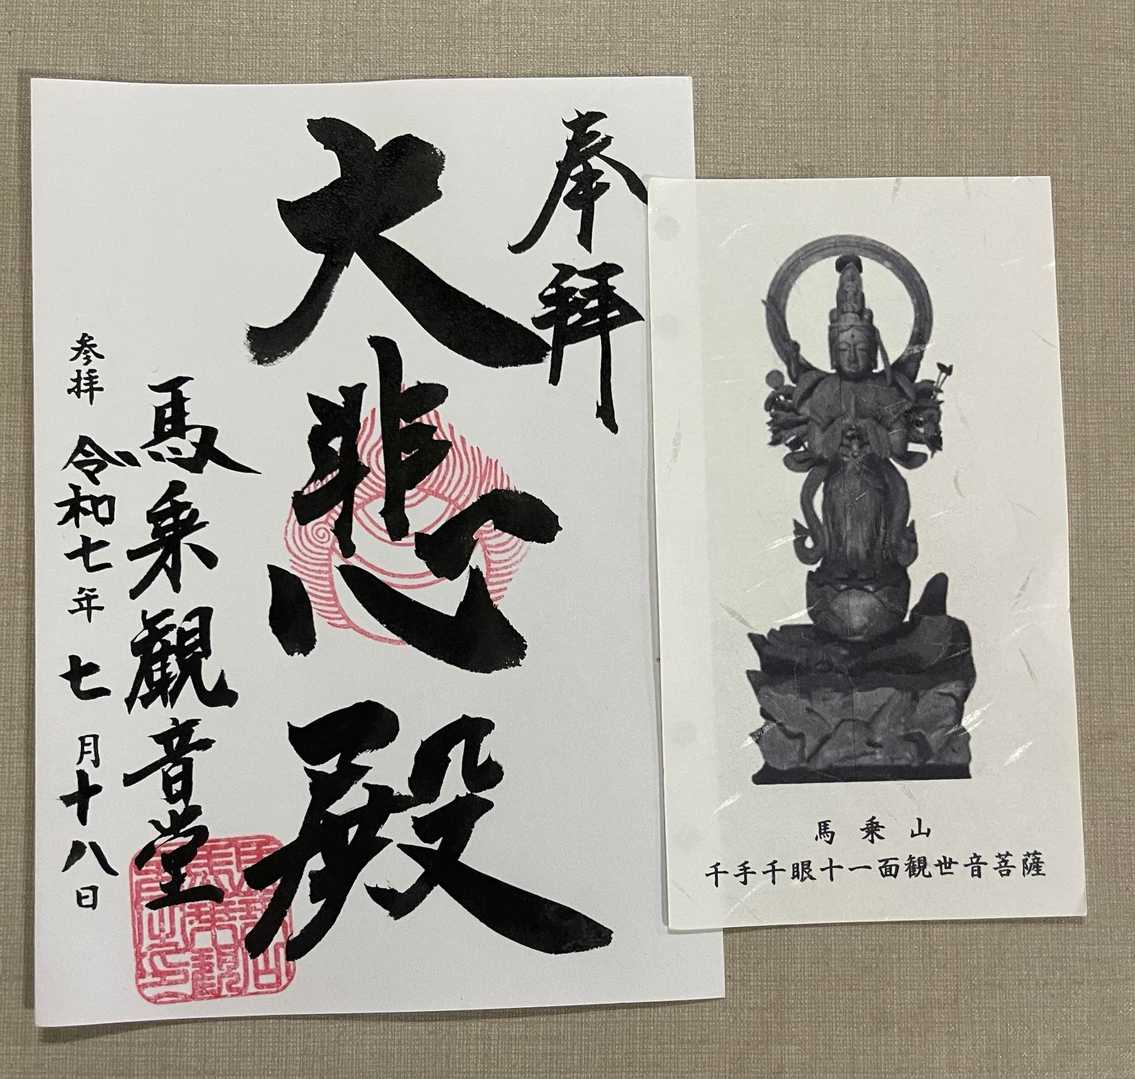 奉拝
大悲殿
馬乗観音堂
参拝 令和七年 七月十八日
馬乗山
千手千眼十一面観世音菩薩